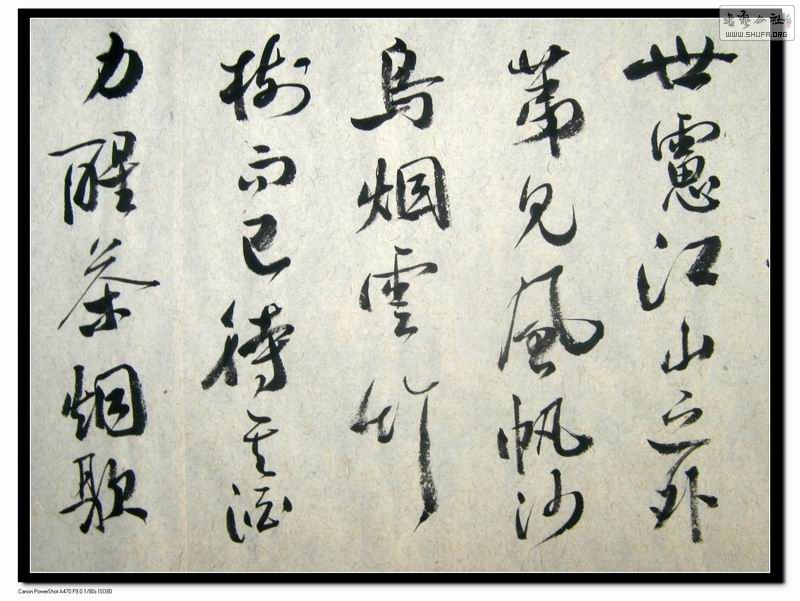 世慮江山之外
苐見風帆沙
鳥烟雲竹
樹而已待其酒
力醒茶烟歇
书艺公社
WWW.SHUFA.ORG
Canon PowerShot A470 F9.0 1/80s ISO80